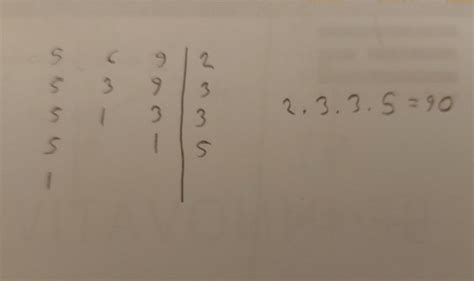 5 6 9 | 2
5 3 9 | 3
5 1 3 | 3
5 1 | 5
1
2.3.3.5=90